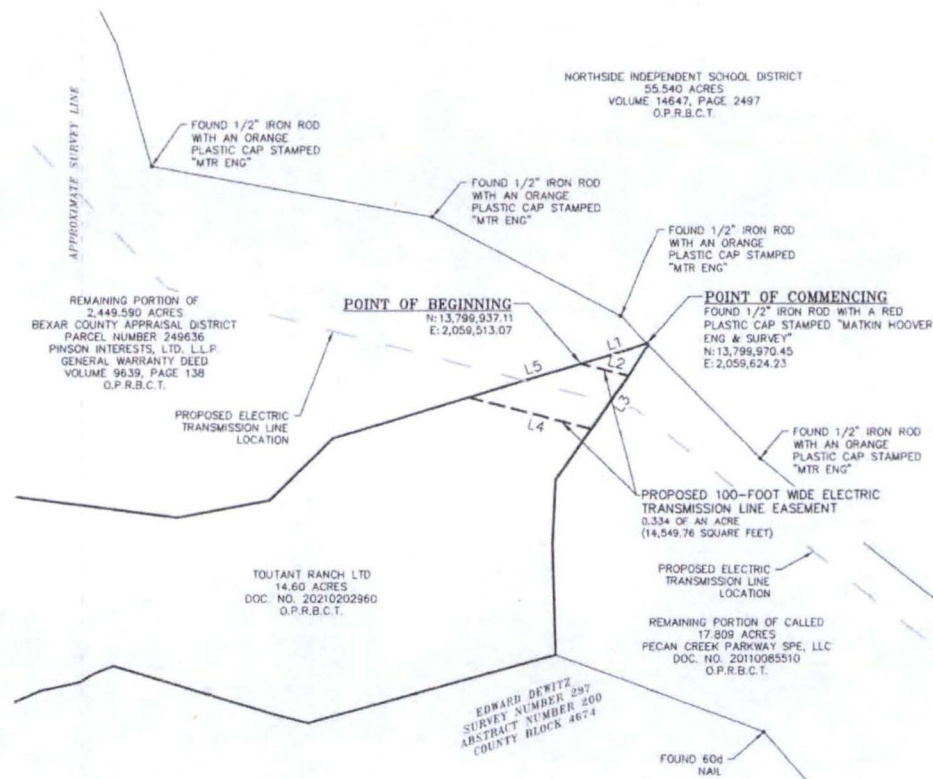 NORTHSIDE INDEPENDENT SCHOOL DISTRICT
55.540 ACRES
VOLUME 14647, PAGE 2497
O.P.R.B.C.T.
APPROXIMATE SURVEY LINE
FOUND 1/2" IRON ROD
WITH AN ORANGE
PLASTIC CAP STAMPED
"MTR ENG"
FOUND 1/2" IRON ROD
WITH AN ORANGE
PLASTIC CAP STAMPED
"MTR ENG"
FOUND 1/2" IRON ROD
WITH AN ORANGE
PLASTIC CAP STAMPED
"MTR ENG"
REMAINING PORTION OF
2,449.590 ACRES
BEXAR COUNTY APPRAISAL DISTRICT
PARCEL NUMBER 249636
PINSON INTERESTS, LTD. L.L.P.
GENERAL WARRANTY DEED
VOLUME 9639, PAGE 138
O.P.R.B.C.T.
POINT OF BEGINNING
N: 13,799,937.11
E: 2,059,513.07
POINT OF COMMENCING
FOUND 1/2" IRON ROD WITH A RED
PLASTIC CAP STAMPED "MATKIN HOOVER
ENG & SURVEY"
N: 13,799,970.45
E: 2,059,624.23
L1
L2
L5
L3
L4
PROPOSED ELECTRIC
TRANSMISSION LINE
LOCATION
FOUND 1/2" IRON ROD
WITH AN ORANGE
PLASTIC CAP STAMPED
"MTR ENG"
PROPOSED 100-FOOT WIDE ELECTRIC
TRANSMISSION LINE EASEMENT
0.334 OF AN ACRE
(14,549.76 SQUARE FEET)
TOUTANT RANCH LTD
14.60 ACRES
DOC. NO. 20210202960
O.P.R.B.C.T.
PROPOSED ELECTRIC
TRANSMISSION LINE
LOCATION
REMAINING PORTION OF CALLED
17.809 ACRES
PECAN CREEK PARKWAY SPE, LLC
DOC. NO. 20110085510
O.P.R.B.C.T.
EDWARD DEWITZ
SURVEY NUMBER 297
ABSTRACT NUMBER 200
COUNTY BLOCK 4674
FOUND 60d
NAIL